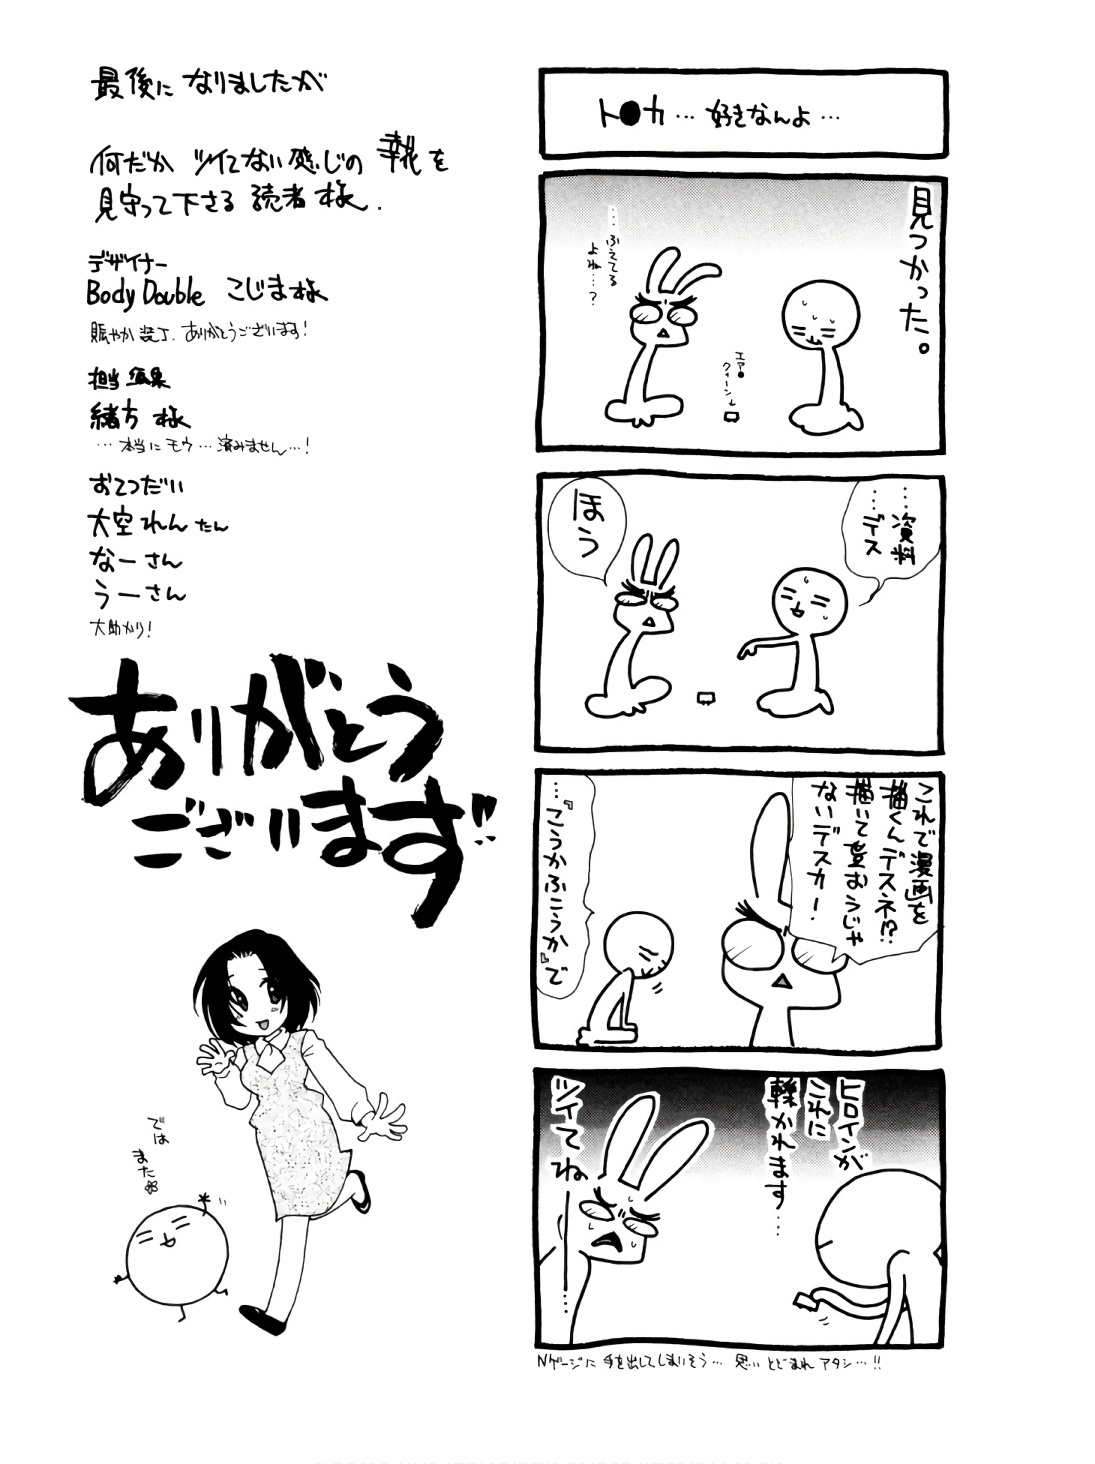 ト●カ…好きなんよ…
見つかった。
…ふえてる
よね…?
エア●
クィーン↓
……資料
デス
ほう
これで漫画を
描くんデスネ!?
描いて萱むうじゃ
ないデスカー
…『こうかふこうか』で
ヒロインが
これに
轢かれます…
ツイてねー…
Nゲージに 手を出してしまいそう… 思いとどまれ アタシ…!!
最後に なりましたが
何だか ツイてない感じの 幸花を
見守って下さる 読者 様.
デザイナー
Body Double こじま様
賑やか装丁、ありがとうございます!
担当 編集
緒方 様
…本当に モウ…済みません…!
おてつだい
大空れんたん
なーさん
うーさん
大助かり!
ありがとう
ございます!!
では
また